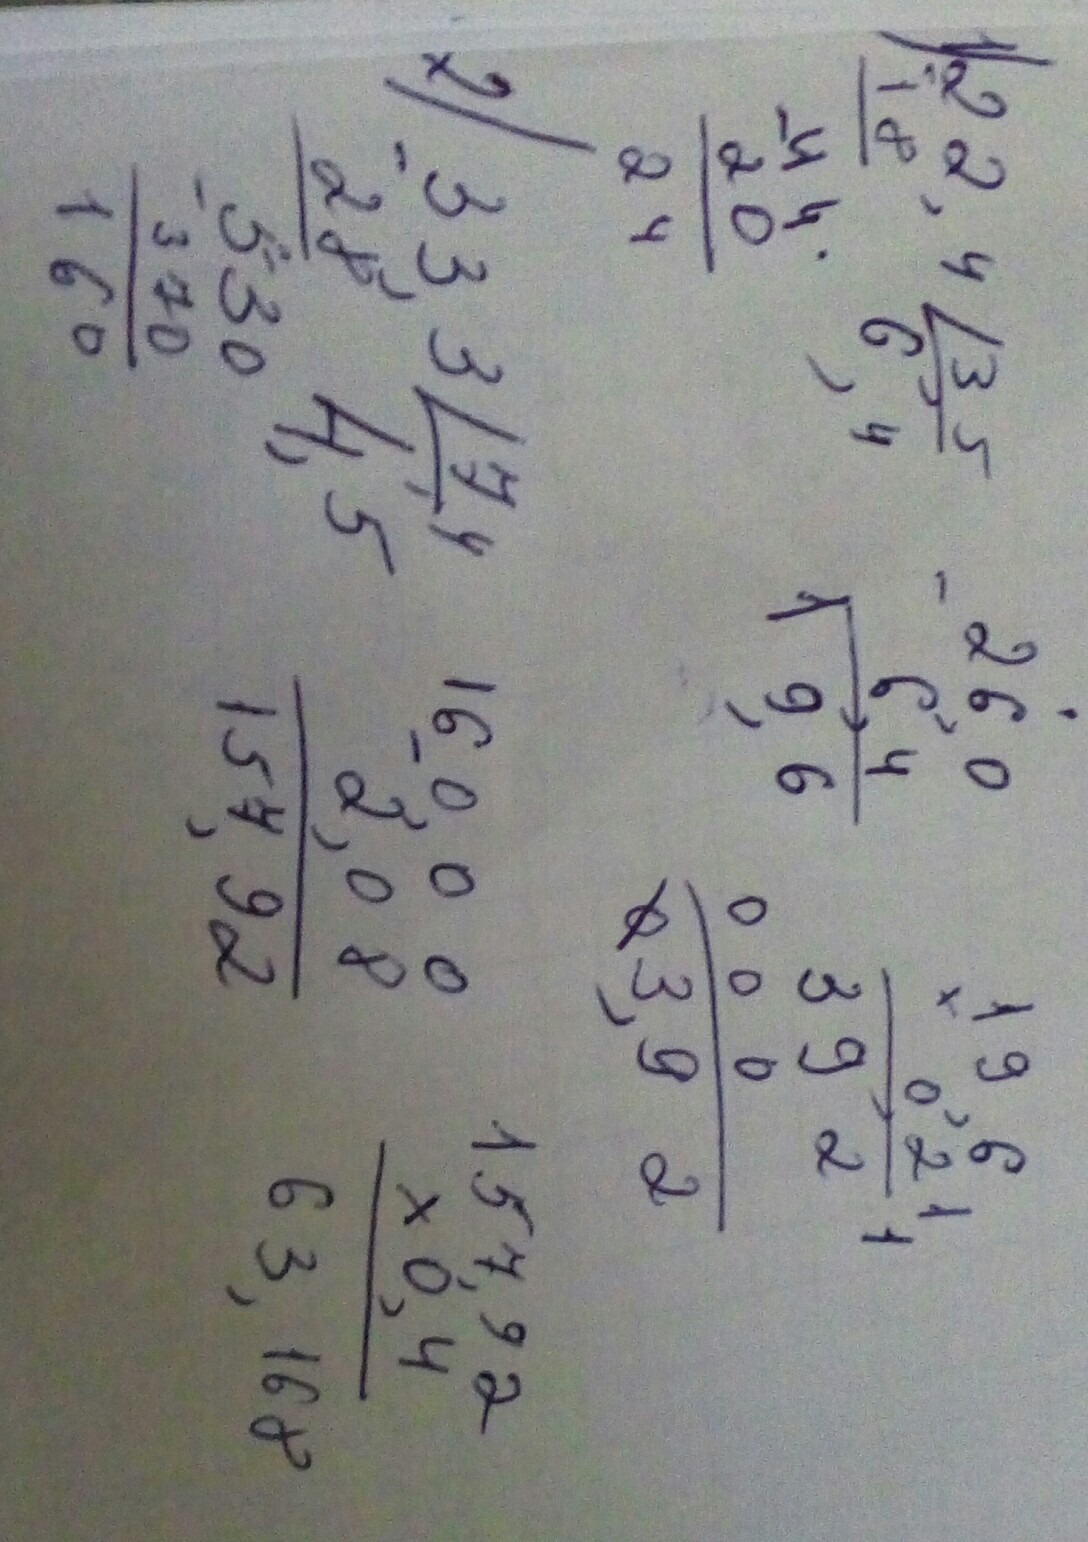 1/
22,4 | 3,5
- 18
6,4
- 44
20
24
- 26,0
6,4
19,6
19,6
x 0,21
1
392
000
03,92
2/
- 333 | 7,4
28
4,5
- 530
370
160
160,00
- 2,08
157,92
157,92
x 0,4
63,168